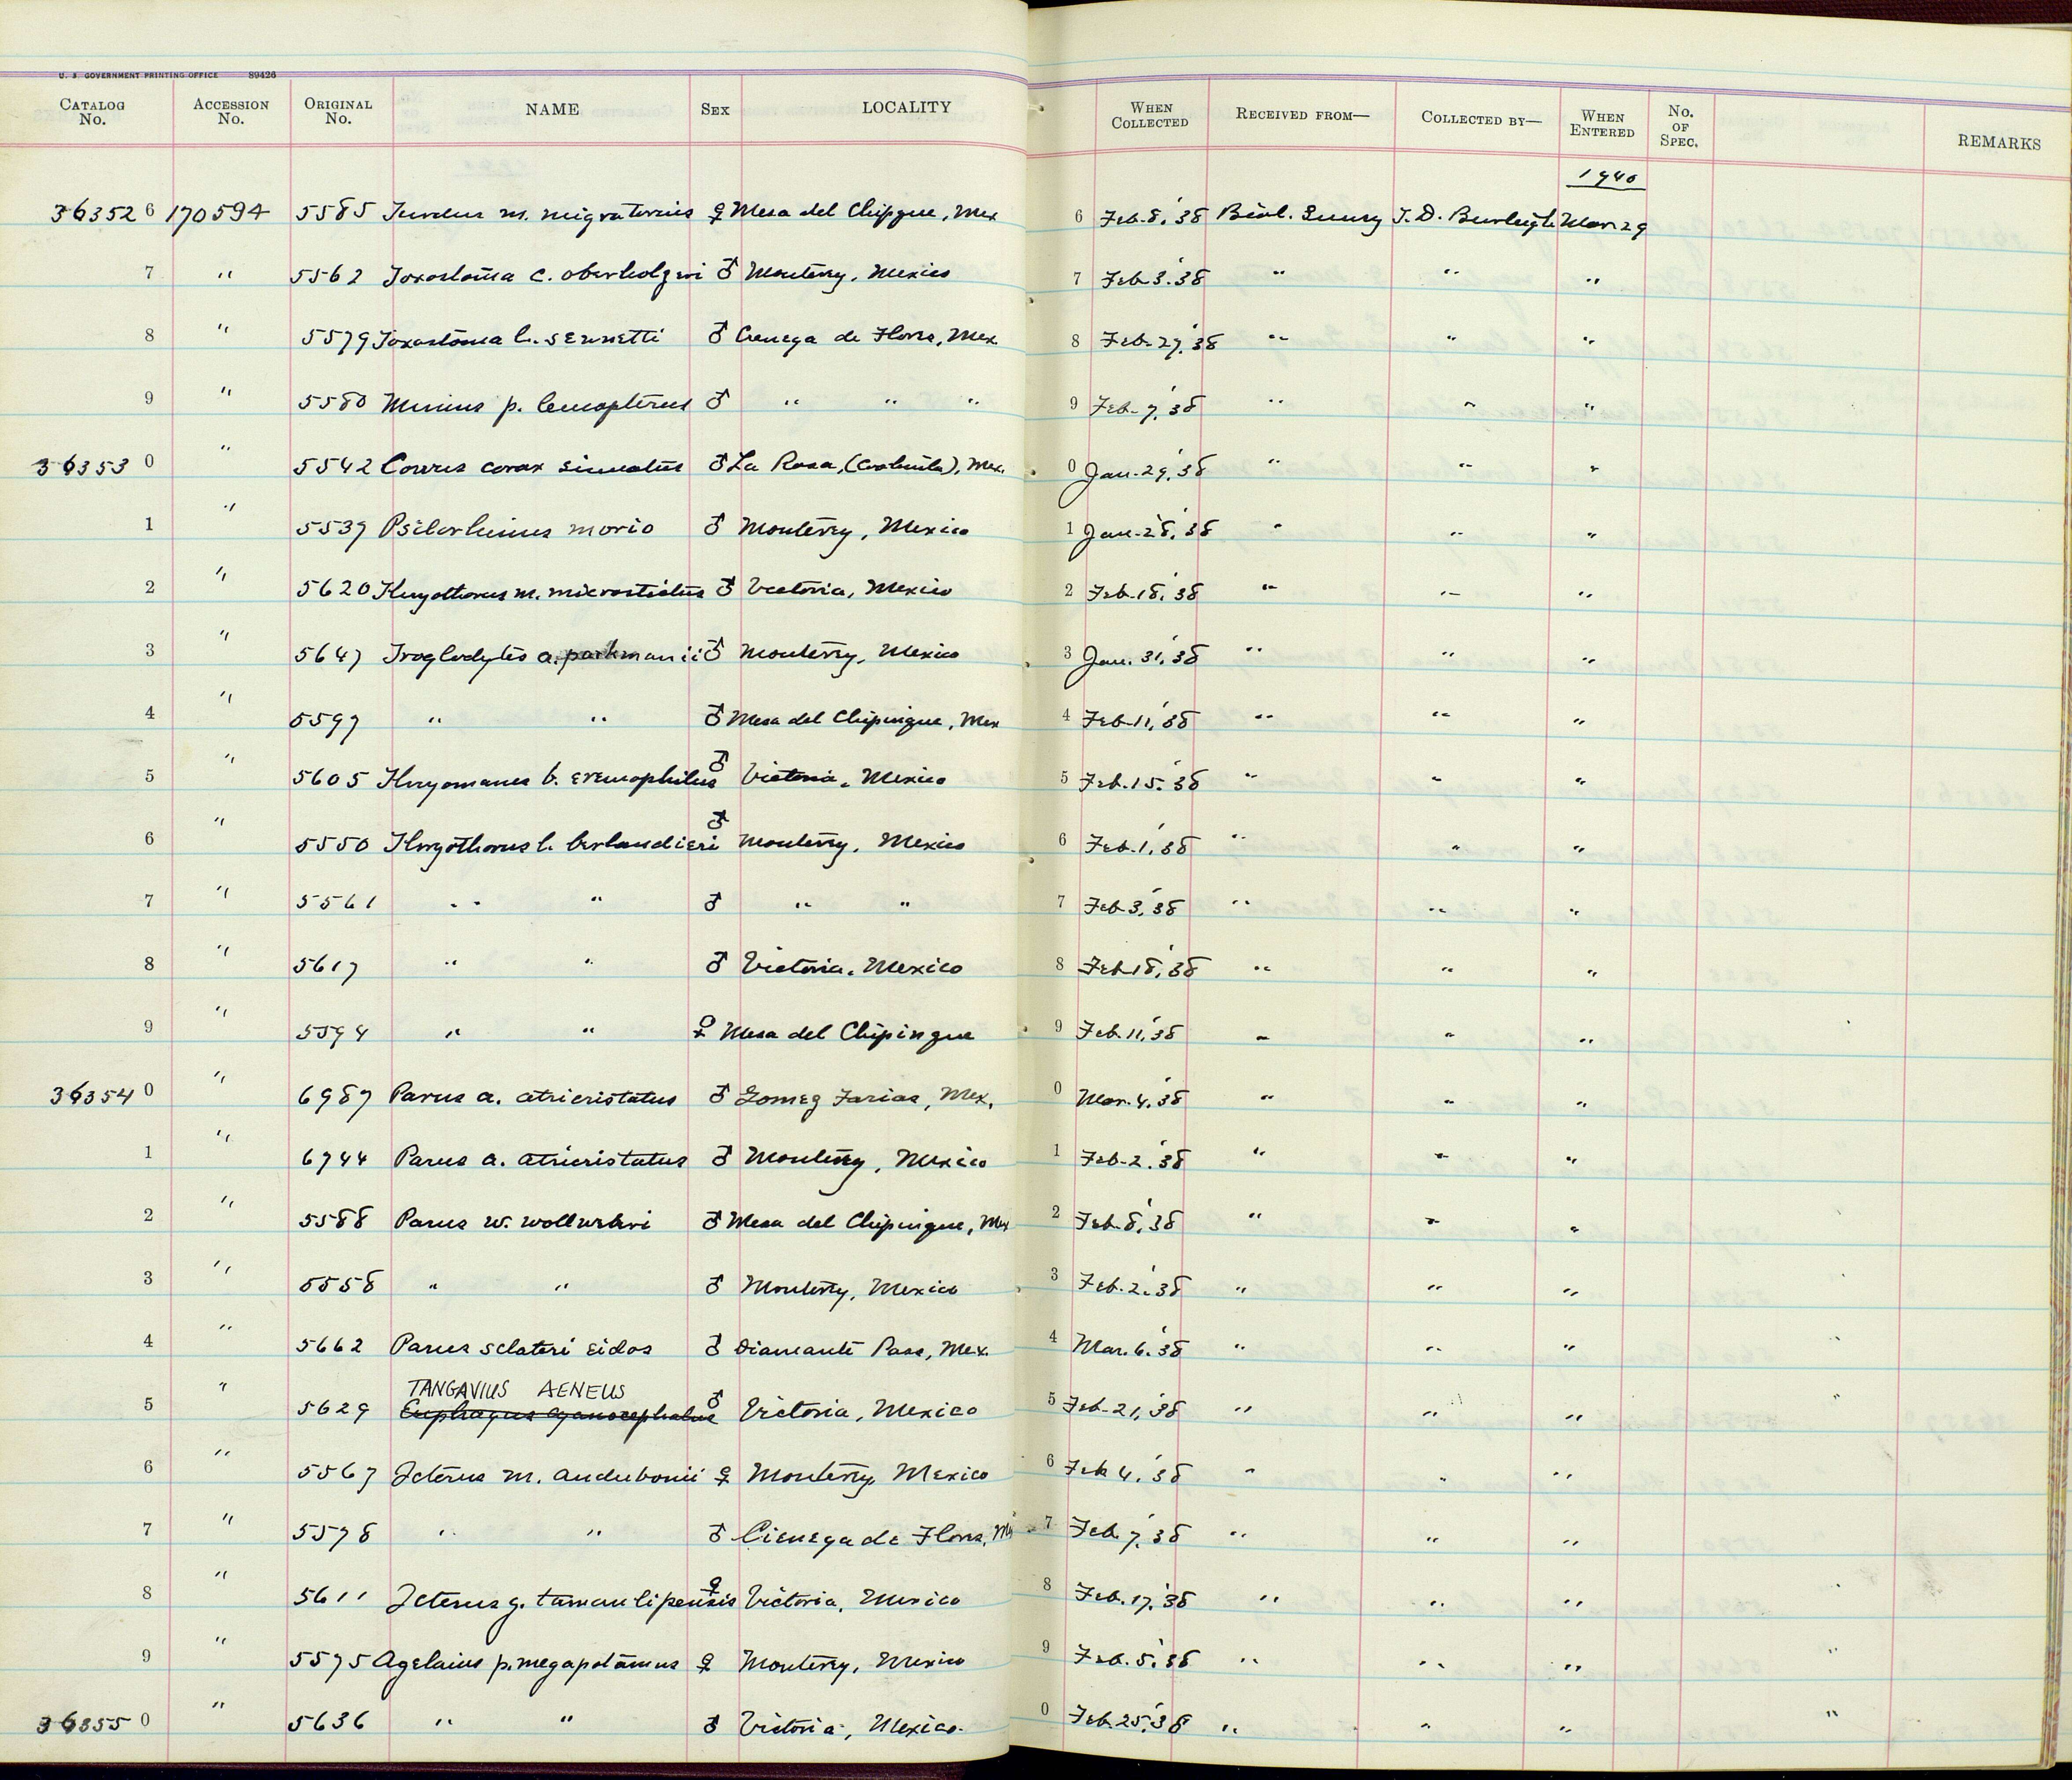 U. S. GOVERNMENT PRINTING OFFICE 89426
CATALOG No. ACCESSION No. ORIGINAL No. NAME SEX LOCALITY WHEN COLLECTED RECEIVED FROM— COLLECTED BY— WHEN ENTERED No. OF SPEC. REMARKS
1940
363526 170594 5585 Turdus m. migratorius ♀ Mesa del Chipgue, Mex 6 Feb. 8, '38 Biol. Survey T. D. Burleigh Mar. 29
7 " 5562 Toxostoma c. oberholseri ♂ Monterry, Mexico 7 Feb. 3. '38 " " "
8 " 5579 Toxostoma l. sennetti ♂ Cienega de Flores, Mex 8 Feb. 27, '38 " " "
9 " 5580 Mimus p. leucopterus ♂ " " " 9 Feb. 7, '38 " " "
363530 " 5542 Corvus corax sinuatus ♂ La Rosa, (Coahuila), Mex. 0 Jan. 29, '38 " " "
1 " 5537 Psilorhinus morio ♂ Monterry, Mexico 1 Jan. 28, '38 " " "
2 " 5620 Thryothorus m. microstictus ♂ Victoria, Mexico 2 Feb. 18, '38 " " "
3 " 5647 Troglodytes a. parkmanii ♂ Monterry, Mexico 3 Jan. 31, '38 " " "
4 " 5597 " " ♂ Mesa del Chipingue, Mex 4 Feb. 11, '38 " " "
5 " 5605 Thryomanes b. eremophilus ♂ Victoria, Mexico 5 Feb. 15. '38 " " "
6 " 5550 Thryothorus l. berlandieri ♂ Monterry, Mexico 6 Feb. 1, '38 " " "
7 " 5561 " " ♂ " " 7 Feb. 3, '38 " " "
8 " 5617 " " ♂ Victoria, Mexico 8 Feb. 18, '38 " " "
9 " 5594 " " ♀ Mesa del Chipingue 9 Feb. 11, '38 " " "
363540 " 6987 Parus a. atricristatus ♂ Gomez Farias, Mex. 0 Mar. 4, '38 " " "
1 " 6744 Parus a. atricristatus ♂ Monterry, Mexico 1 Feb. 2. '38 " " "
2 " 5588 Parus w. wollweberi ♂ Mesa del Chipingue, Mex 2 Feb. 8, '38 " " "
3 " 5558 " " ♂ Monterry, Mexico 3 Feb. 2. '38 " " "
4 " 5662 Parus sclateri eidos ♂ Diamante Pass, Mex. 4 Mar. 6. '38 " " " "
TANGAVIUS AENEUS
5 " 5629 Euphagus cyanocephalus ♂ Victoria, Mexico 5 Feb. 21, '38 " " " "
6 " 5567 Icterus m. audubonii ♀ Monterry, Mexico 6 Feb 4, '38 " " "
7 " 5578 " " ♂ Cienega de Flores, Mx 7 Feb. 7, '38 " " "
8 " 5611 Icterus g. tamaulipensis ♀ Victoria, Mexico 8 Feb. 17, '38 " " "
9 " 5575 Agelaius p. megapotamus ♀ Monterry, Mexico 9 Feb. 5, '38 " " " "
363550 " 5636 " " ♂ Victoria, Mexico. 0 Feb. 25, '38 " " " "